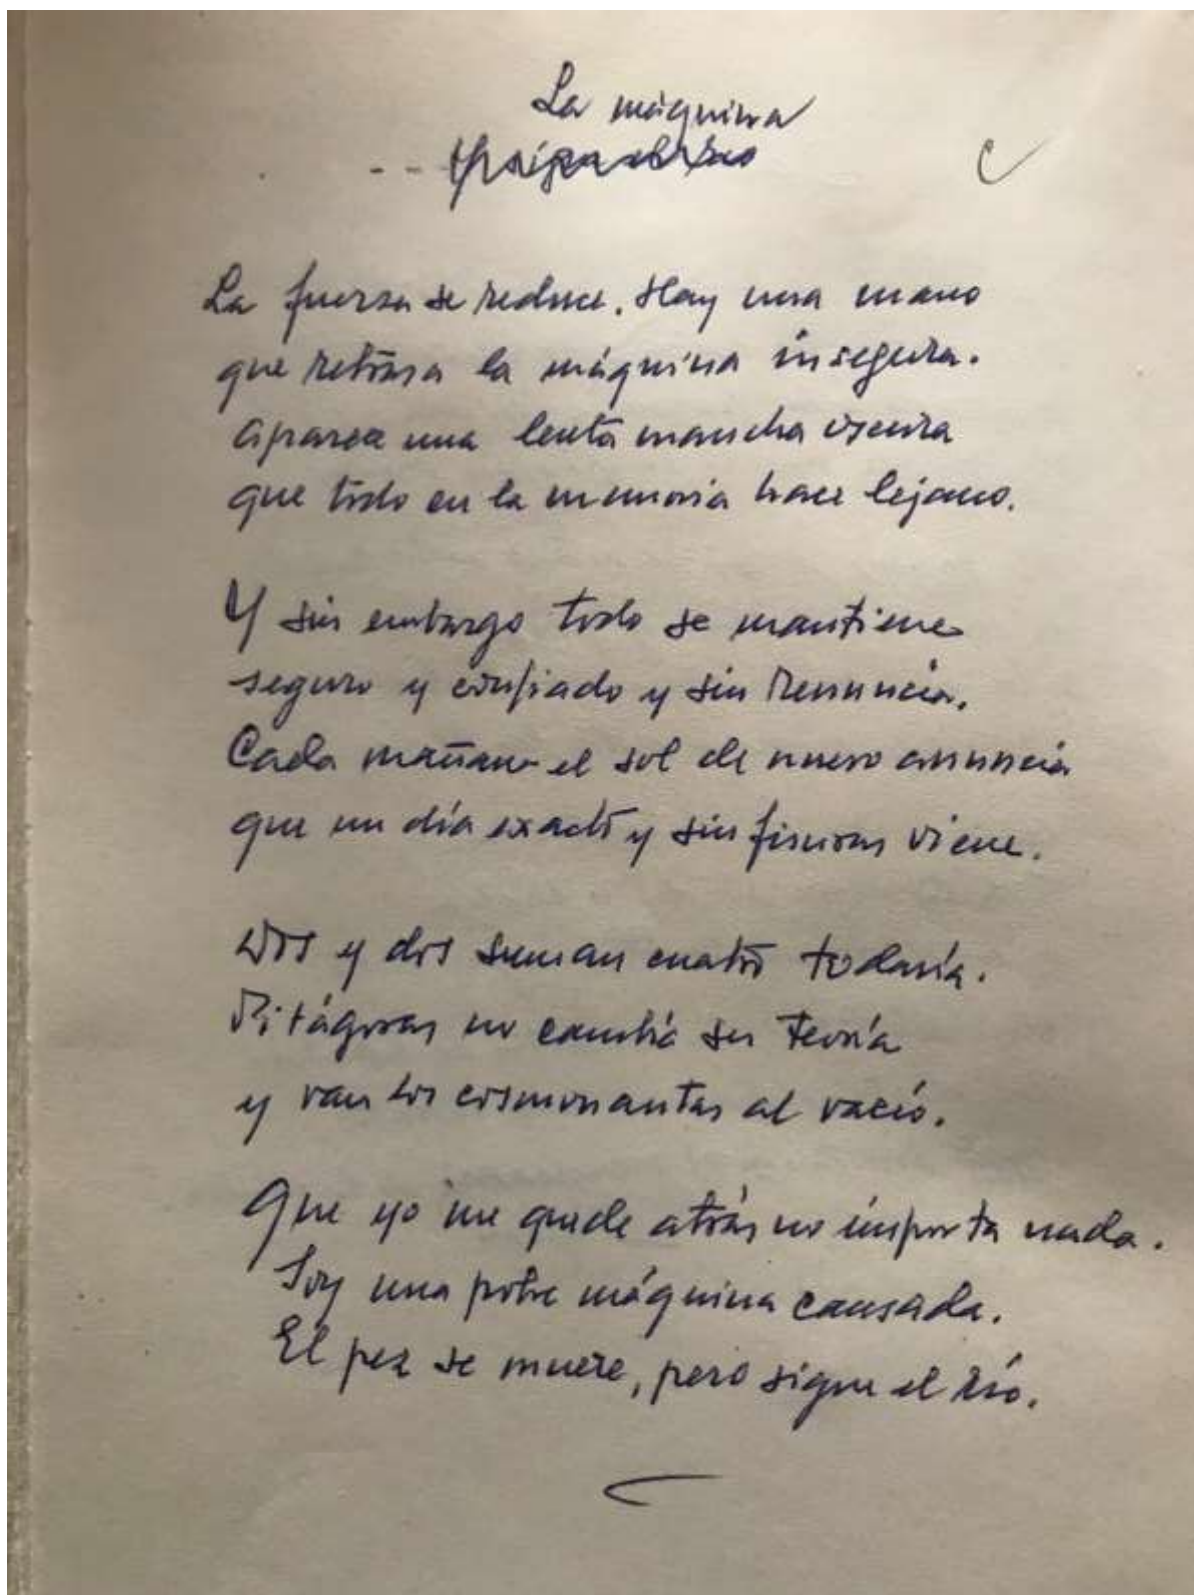 La máquina
La fuerza se reduce. Hay una mano
que retrasa la máquina insegura.
Aparece una lenta mancha oscura
que todo en la memoria hace lejano.
Y sin embargo todo se mantiene
seguro y confiado y sin renuncia.
Cada mañana el sol de nuevo anuncia
que un día exacto y sin fisuras viene.
Dos y dos suman cuatro todavía.
Pitágoras no cambia su teoría
y van los cosmonautas al vacío.
Que yo me quede atrás no importa nada.
Soy una pobre máquina cansada.
El pez se muere, pero sigue el río.